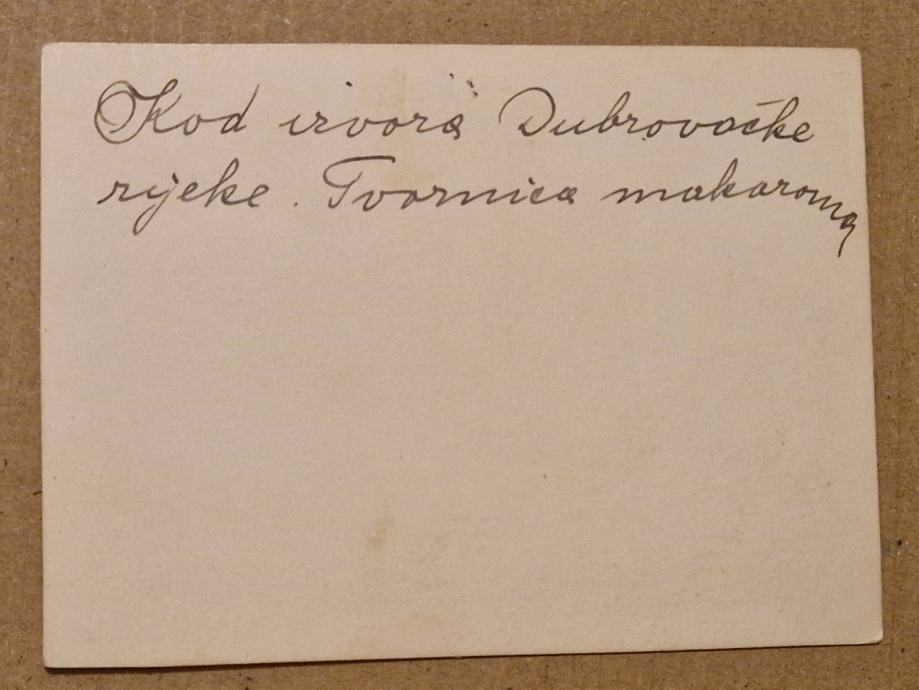 Kod izvora Dubrovačke
rijeke. Tvornica makarona